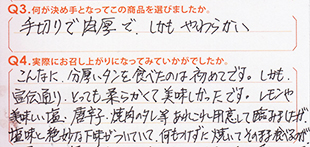 Q3.何が決め手となってこの商品を選びましたか。
手切りで肉厚で、しかもやわらかい
Q4.実際にお召し上がりになってみていかがでしたか。
こんなに、分厚いタンを食べたのは初めてです。しかも、
宣伝通り、とっても柔らかくて美味しかったです。レモンや
美味しい塩、唐辛子、焼肉のタレ等あれこれ用意して臨みましたが、
塩味と絶妙な下味がついていて、何もつけずに焼いてそのまま食べるが